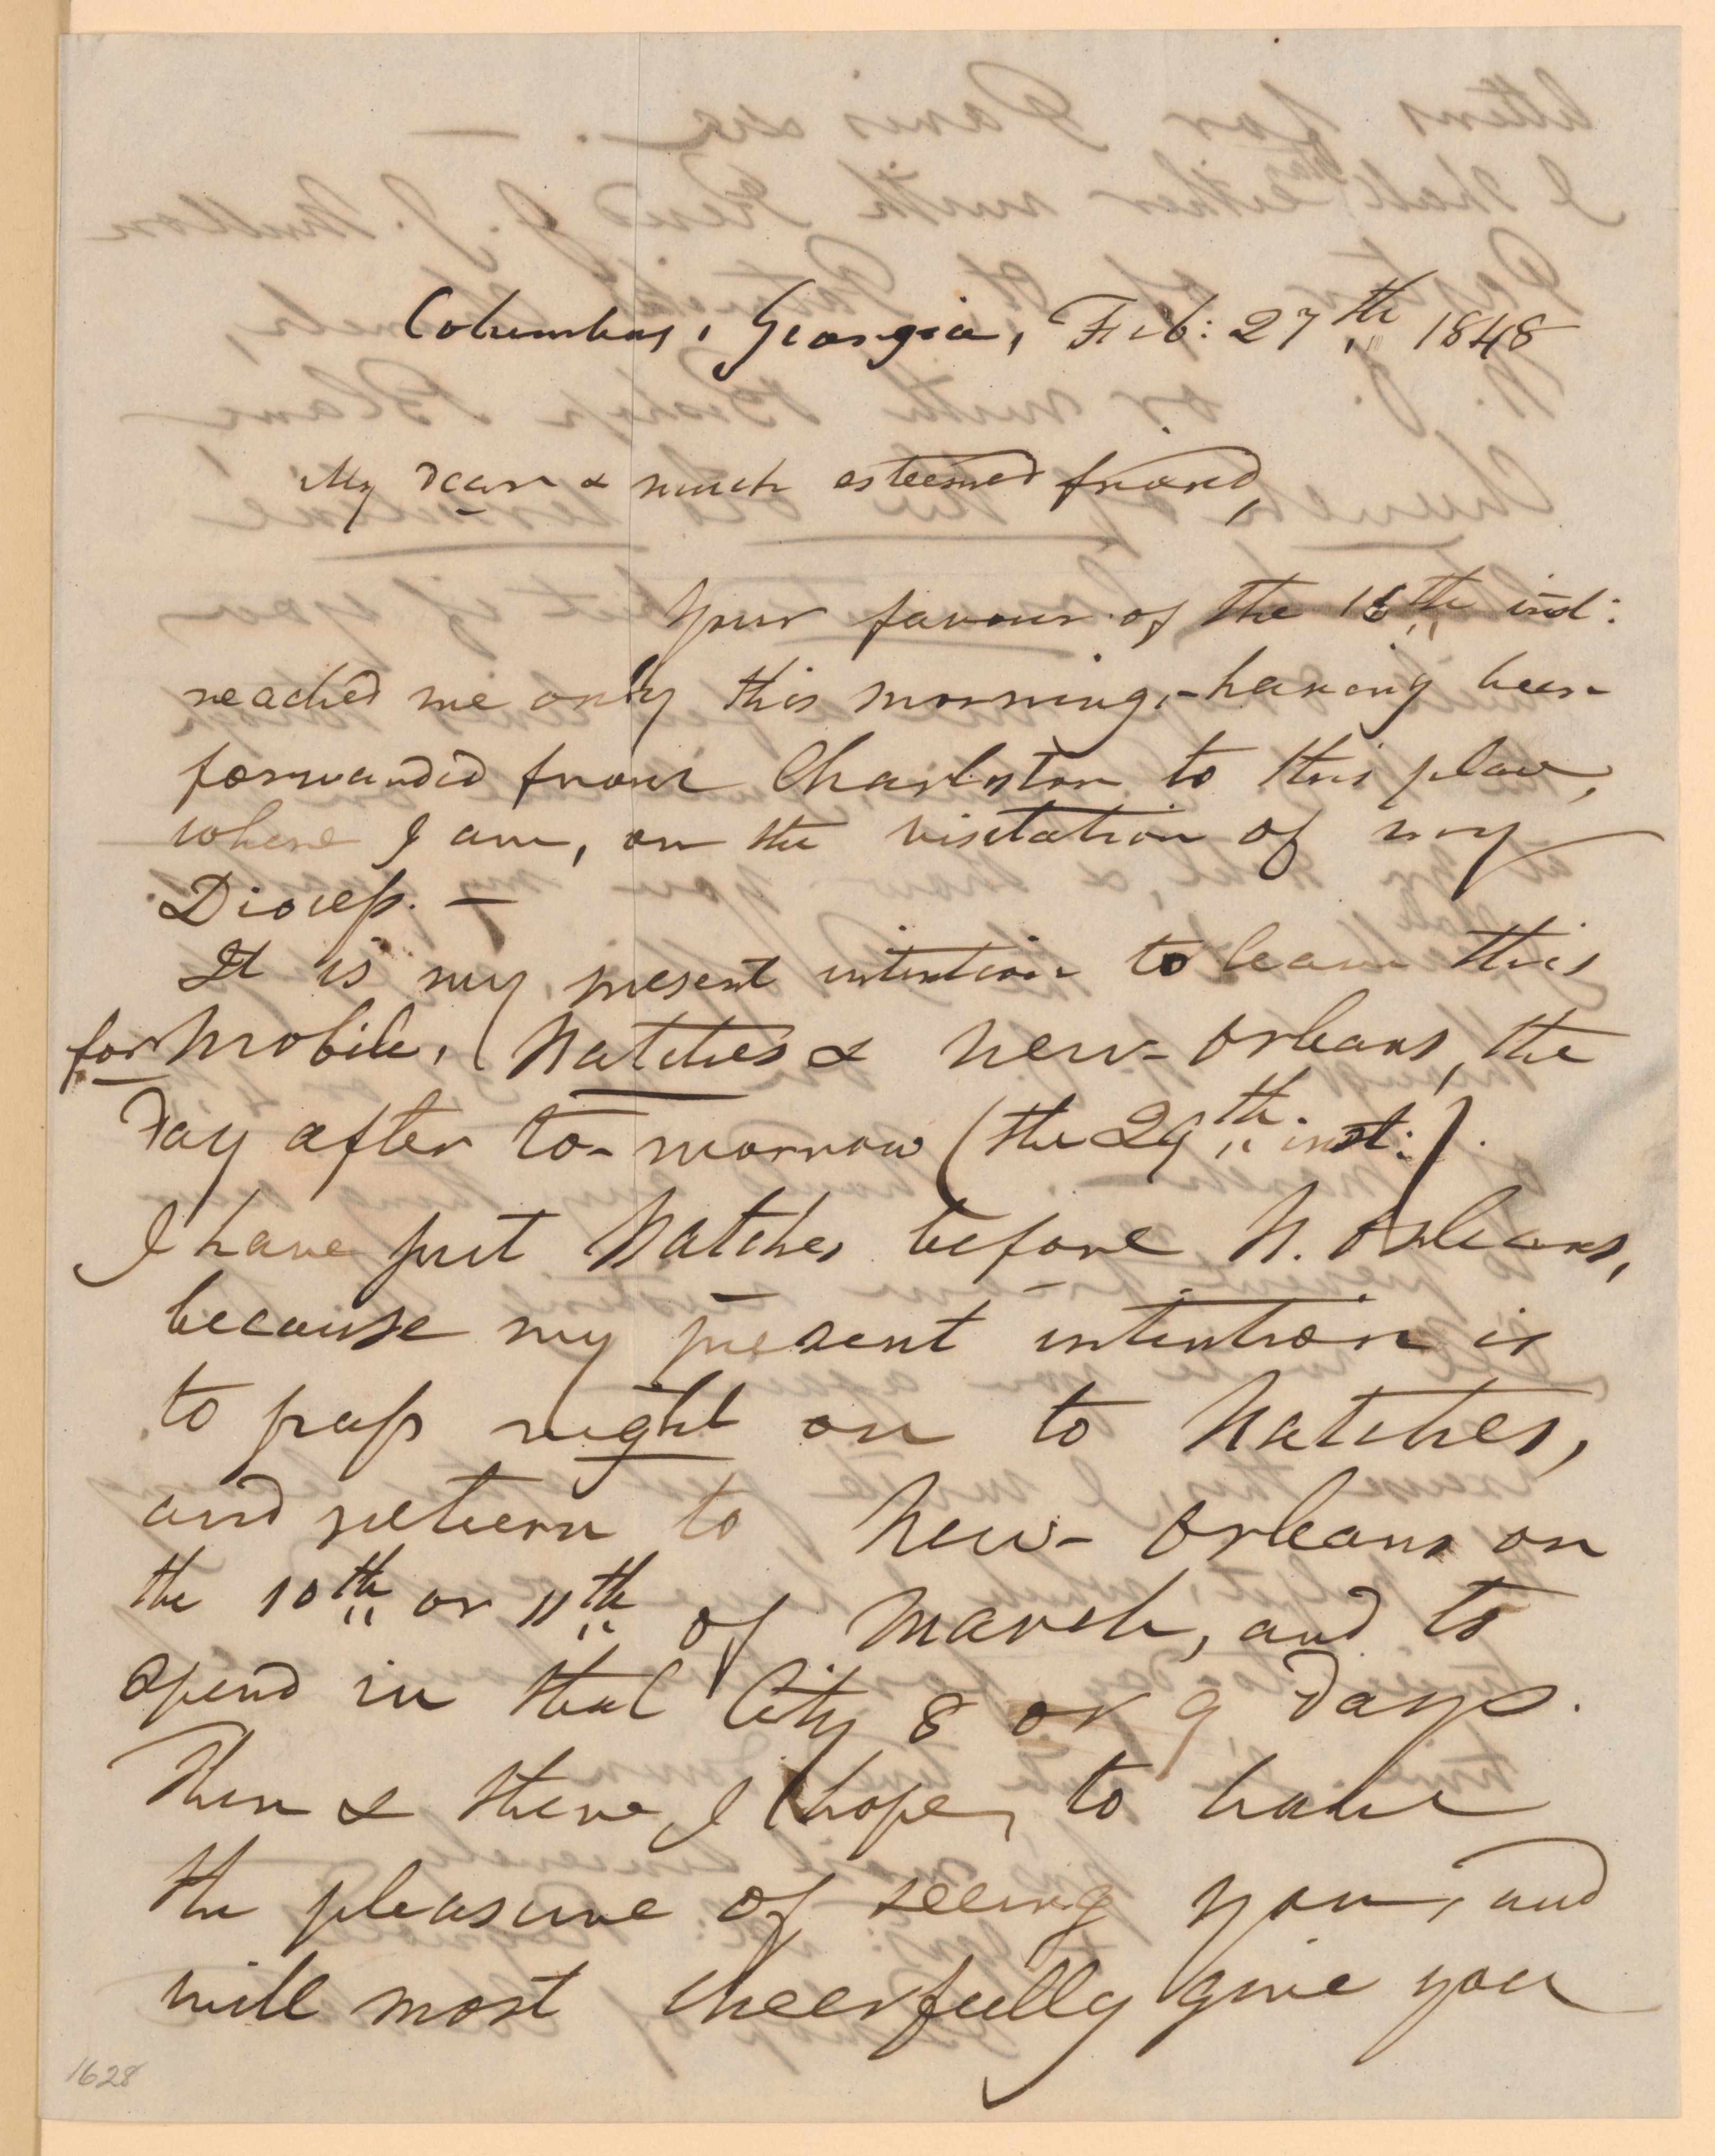 Columbus, Georgia, Feb: 27th 1848
My dear & much esteemed friend,
Your favour of the 16th inst:
reached me only this morning,- having been
forwarded from Charleston to this place,
where I am, on the visitation of my
Diocess. —
It is my present intention to leave this
for Mobile, Natches & New-Orleans, the
day after to-morrow (the 29th inst:).
I have put Natches before N. Orleans,
because my present intention is
to pass right on to Natches,
and return to New-Orleans on
the 10th or 11th of March, and to
spend in that City 8 or 9 days.
Then & there, I hope, to have
the pleasure of seeing you, and
will most cheerfully give you
1628